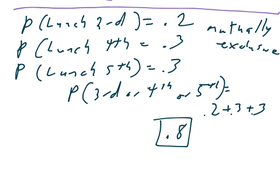 P(Lunch 3rd) = .2 mutually
P(Lunch 4th = .3 exclusive
P(Lunch 5th) = .3
P(3rd or 4th or 5th) =
.2+.3+.3
.8